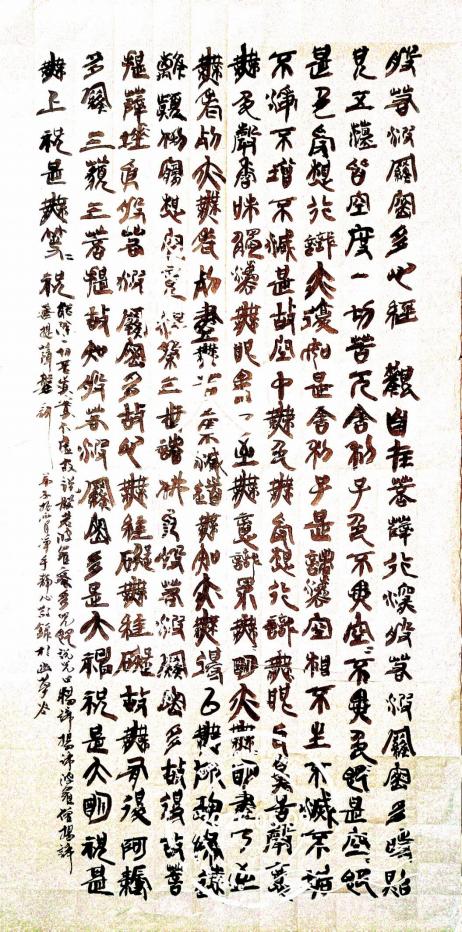 般若波羅蜜多心經 觀自在菩薩行深般若波羅蜜多時照
見五蘊皆空度一切苦厄舍利子色不異空空不異色色即是空空即
是色受想行識亦復如是舍利子是諸法空相不生不滅不垢
不淨不增不減是故空中無色無受想行識無眼耳鼻舌聲意
無色聲香味觸法無眼界乃至無意識界無無明亦無無明盡乃至
無老死亦無老死盡無苦集滅道無知亦無得以無所
離顛倒夢想究竟涅槃三世諸佛般若波羅蜜多故得故菩
提薩埵般若波羅蜜多故心無罣礙無罣礙故無有得阿耨
多羅三藐三菩提故知般若波羅蜜多是大神咒是大明咒是
無上咒是無等等咒
能除一切苦真實不虛故說般若波羅蜜多咒即說咒曰揭諦揭諦波羅僧揭諦
菩提薩婆訶
弟子靜心敬錄於